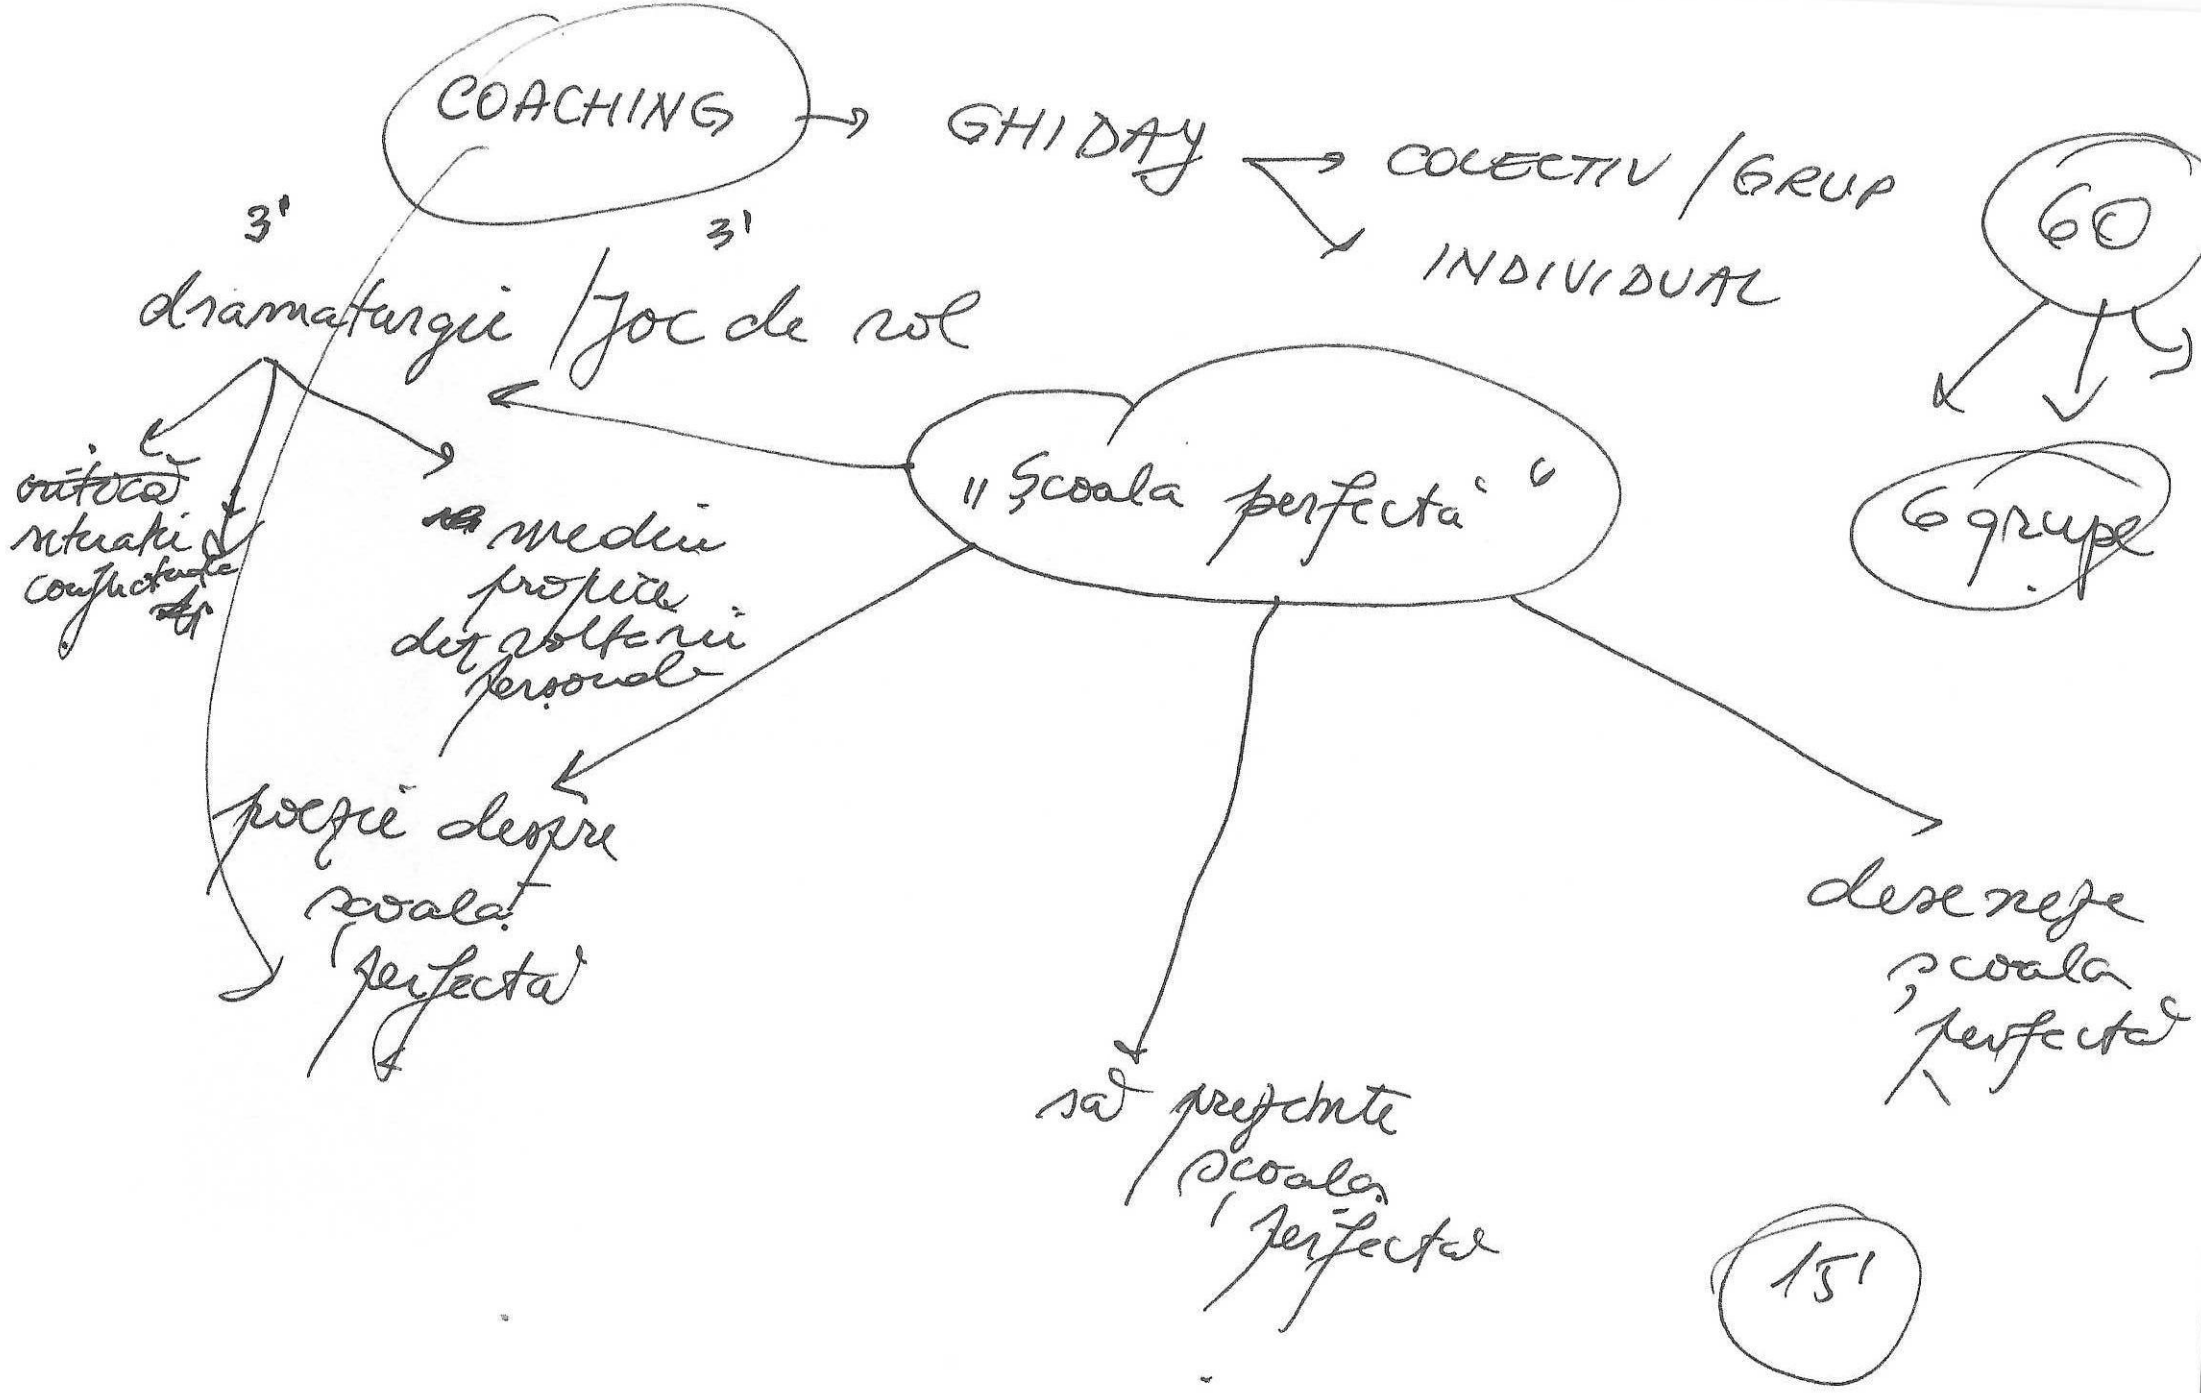 COACHING → GHIDAJ → COLECTIV / GRUP
INDIVIDUAL
60
6 grupe
3' 3'
dramaturgii / Joc de rol
„Școala perfectă“
critică
situații
conflictuale
mediu
propice
dezvoltării
personale
poezie despre
școală
perfectă
să prezinte
școala
perfectă
deseneze
școala
perfectă
15'